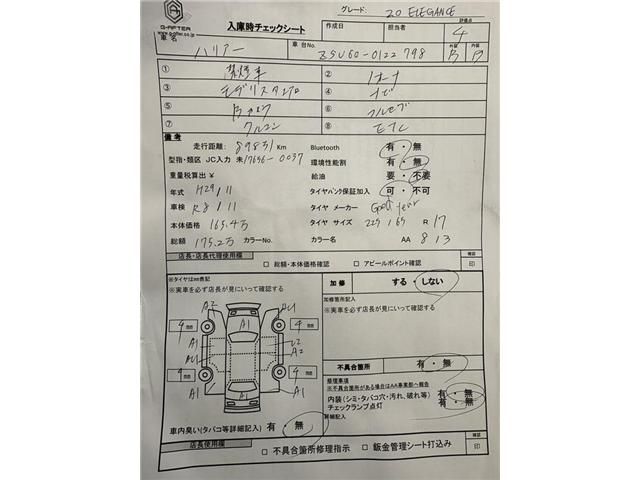 G-AFTER
www.g-after.co.jp
入庫時チェックシート
作成日
担当者
グレード: 20 ELEGANCE
評価点
4
車名
ハリアー
車台No.
ZSU60-0122798
外装
B
内装
B
① 禁煙車
②
③ モデリスタエアロ
④ ナビ
⑤ Bカメラ
⑥ フルセグ
⑦ クルコン
⑧ ETC
備考
走行距離: 89831 Km
Bluetooth
有 ・ 無
型指・類区 JC入力 未 17656-0037
環境性能割
有 ・ 無
重量税算出 ¥
給油
要 ・ 不要
年式 H29/11
タイヤパンク保証加入
可 ・ 不可
車検 R8/11
タイヤ メーカー Good Year
本体価格 165.4万
タイヤ サイズ 225/65 R 17
総額 175.2万
カラーNo.
カラー名
AA 813
店長・店長代理使用欄
確認
□ 総額・本体価格確認 □ アピールポイント確認
印
※タイヤは㎜表記
※実車を必ず店長が見にいって確認する
加修
する ・ しない
加修箇所記入
※実車を必ず店長が見にいって確認する
A2
4 mm
A1
4 mm
A1
A2
4 mm
A1
4 mm
A1
不具合箇所
有 ・ 無
修理事項
※不具合箇所がある場合はAA事業部へ報告
内装(シミ・タバコ穴・汚れ、破れ等)
有 ・ 無
チェックランプ点灯
有 ・ 無
詳細記入
車内臭い(タバコ等詳細記入) 有 ・ 無
店長使用欄
□ 不具合箇所修理指示 □ 鈑金管理シート打込み
確認
印